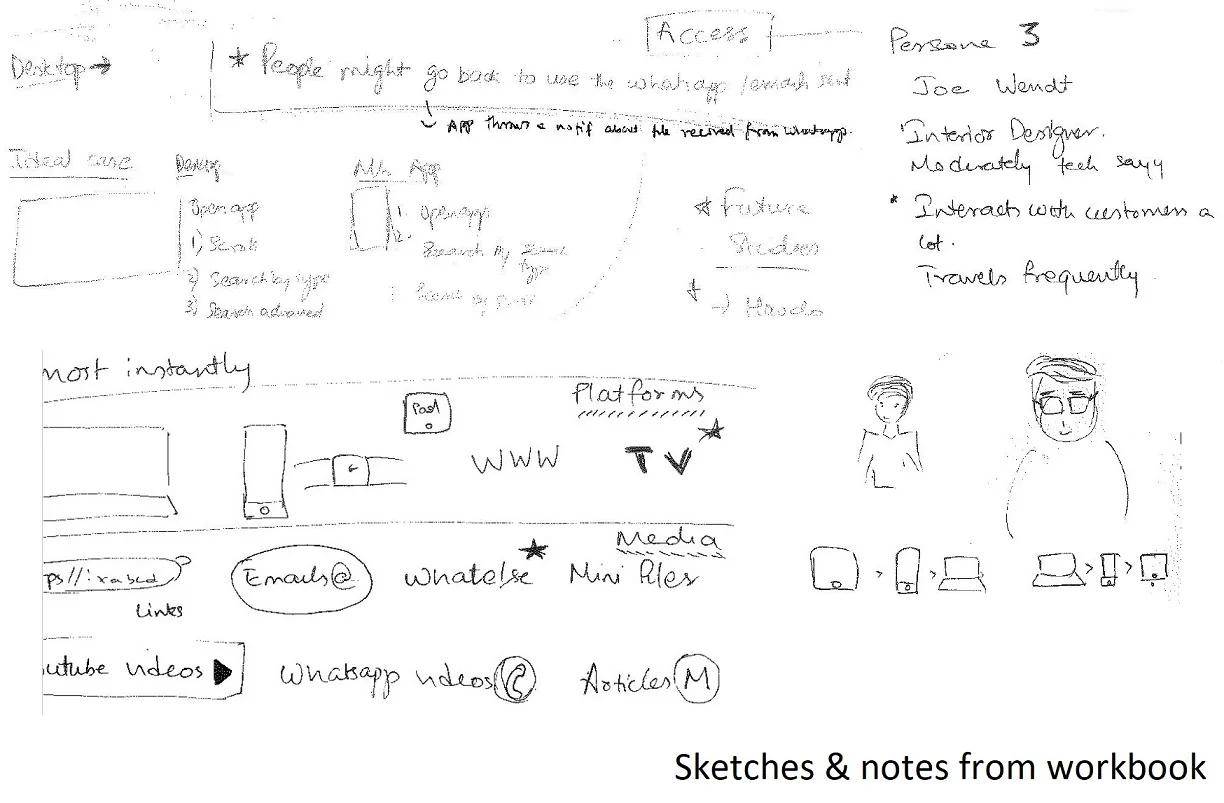 Access
Desktop →
★ People might go back to use the whatsapp / emails sent
↳ App throws a notif about file received from whatsapp.
Persona 3
Joe Wendt
Interior Designer.
Moderately tech savy
* Interacts with customers a
lot.
Travels frequently.
Ideal case
Open app
1) Scroll
2) Search by type
3) Search advanced
App
1. Open app
2. Search by
type
★ Future
Studies
most instantly
Platforms
iPad
WWW
TV ★
Media
ps//:xabcd
Links
Emails@
Whatelse ★
Mini files
utube videos
Whatsapp videos
Articles M
Sketches & notes from workbook